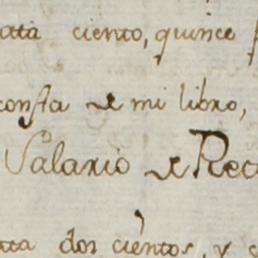 ata ciento, quince
consta de mi libro,
Salario de Rec
tta dos cientos, y